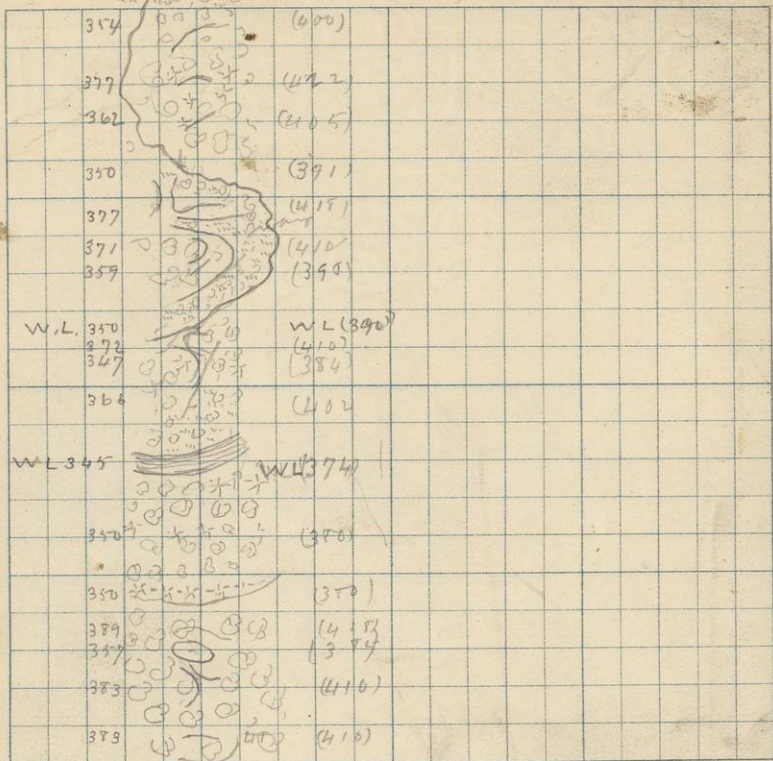 354 (400)
377 (422)
362 (405)
350 (391)
377 (418)
371 (410
359 (398)
W.L. 350 WL (390)
372 (410)
347 (384)
366 (402
WL 345 WL (374)
350 (380)
350 (380)
389 (418)
357
383 (410)
383 (410)